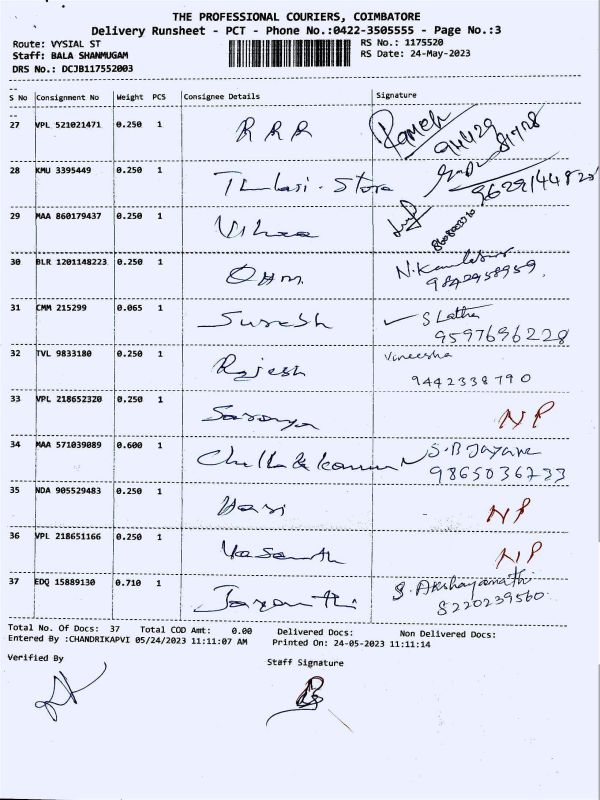 THE PROFESSIONAL COURIERS, COIMBATORE
Delivery Runsheet - PCT - Phone No.:0422-3505555 - Page No.:3
Route: VYSIAL ST RS No.: 1175520
Staff: BALA SHANMUGAM RS Date: 24-May-2023
DRS No.: DCJB117552003
S No Consignment No Weight PCS Consignee Details Signature
27 VPL 521021471 0.250 1 R R R Ramesh
28 KMU 3395449 0.250 1 Thulasi. Store
29 MAA 860179437 0.250 1
30 BLR 1201148223 0.250 1 OHM
31 CMM 215299 0.065 1 Suresh S Latha
9597696228
32 TVL 9833180 0.250 1 Rajesh Vineesha
9442338790
33 VPL 218652320 0.250 1 Saranya NP
34 MAA 571039089 0.600 1
9865036733
35 NDA 905529483 0.250 1 Hari NP
36 VPL 218651166 0.250 1 Vasanth NP
37 EDQ 15889130 0.710 1 Jayanthi
8220239560
Total No. Of Docs: 37 Total COD Amt: 0.00 Delivered Docs: Non Delivered Docs:
Entered By :CHANDRIKAPVI 05/24/2023 11:11:07 AM Printed On: 24-05-2023 11:11:14
Verified By Staff Signature